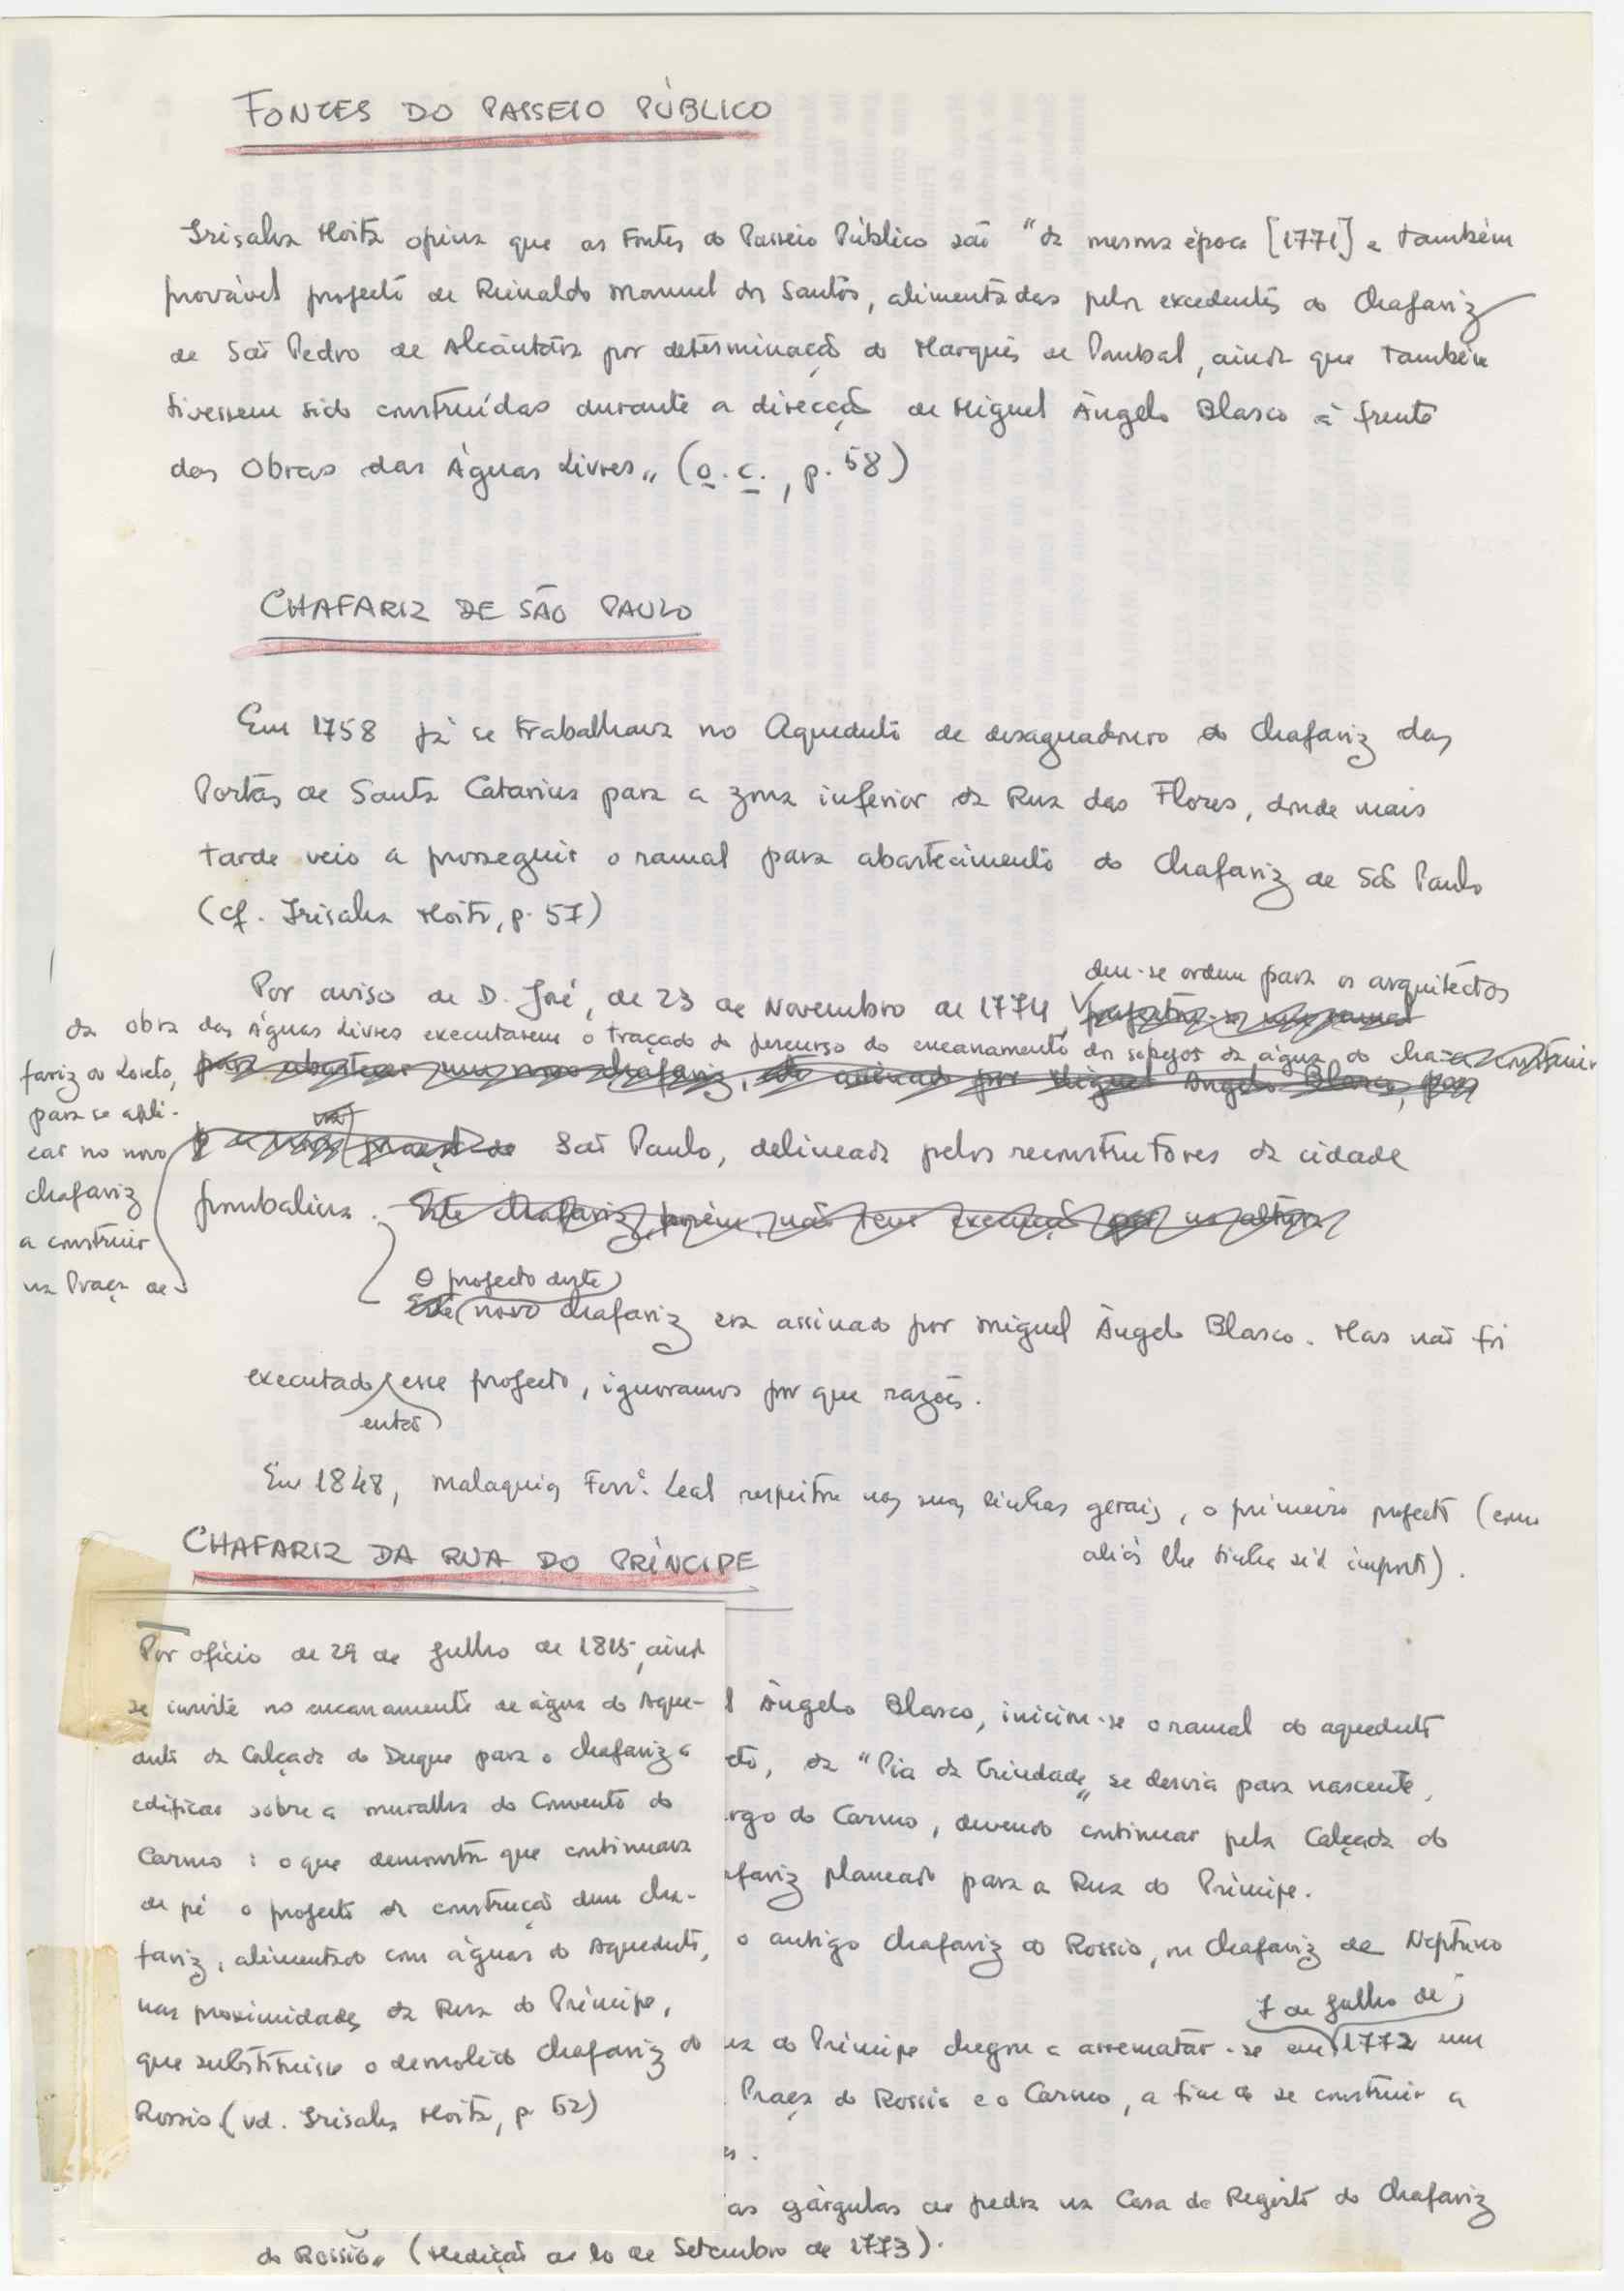 FONTES DO PASSEIO PÚBLICO
Irisalva Moita opina que as Fontes do Passeio Público são "da mesma época [1771] e também
provável projecto de Reinaldo Manuel dos Santos, alimentadas pelos excedentes do Chafariz
de São Pedro de Alcântara por determinação do Marquês de Pombal, ainda que também
tivessem sido construídas durante a direcção de Miguel Ângelo Blasco à frente
das Obras das Águas Livres" (o.c., p. 58)
CHAFARIZ DE SÃO PAULO
Em 1758 já se trabalhava no Aqueduto de desaguadouro do Chafariz das
Portas de Santa Catarina para a zona inferior da Rua das Flores, donde mais
tarde veio a prosseguir o ramal para abastecimento do Chafariz de São Paulo
(cf. Irisalva Moita, p. 57)
Por aviso de D. José, de 23 de Novembro de 1774, deu-se ordem para os arquitectos
da obra das Águas Livres executarem o traçado do percurso do encanamento dos sobejos da água do cha-
fariz do Loreto,
para se apli-
car no novo
chafariz
a construir
na Praça de
São Paulo, delineada pelos reconstrutores da cidade
pombalina. Este chafariz, porém, não teve execução na altura
O projecto deste
Este novo chafariz era assinado por Miguel Ângelo Blasco. Mas não foi
executado esse projecto, ignoramos por que razões.
então
Em 1848, Malaquias Ferrª. Leal respeitou nas suas linhas gerais, o primeiro projecto (como
aliás lhe tinha sido imposto).
CHAFARIZ DA RUA DO PRÍNCIPE
Por ofício de 29 de Julho de 1815, ainda
se insiste no encanamento de água do Aque-
duto da Calçada do Duque para o chafariz a
edificar sobre a muralha do Convento do
Carmo: o que demonstra que continuava
de pé o projecto da construção dum cha-
fariz, alimentado com águas do Aqueduto,
nas proximidades da Rua do Príncipe,
que substituisse o demolido Chafariz do
Rossio (vd. Irisalva Moita, p. 52)
l Ângelo Blasco, iniciou-se o ramal do aqueduto
eto, da "Pia da Trindade" se desvia para nascente,
rgo do Carmo, devendo continuar pela Calçada do
afariz planeado para a Rua do Príncipe.
o antigo chafariz do Rossio, ou chafariz de Neptuno
7 de Julho de
ua do Príncipe chegou a arrematar-se em 1772 um
Praça do Rossio e o Carmo, a fim de se construir a
as gárgulas de pedra na Casa de Registo do Chafariz
do Rossio" (Medição de 10 de Setembro de 1773).